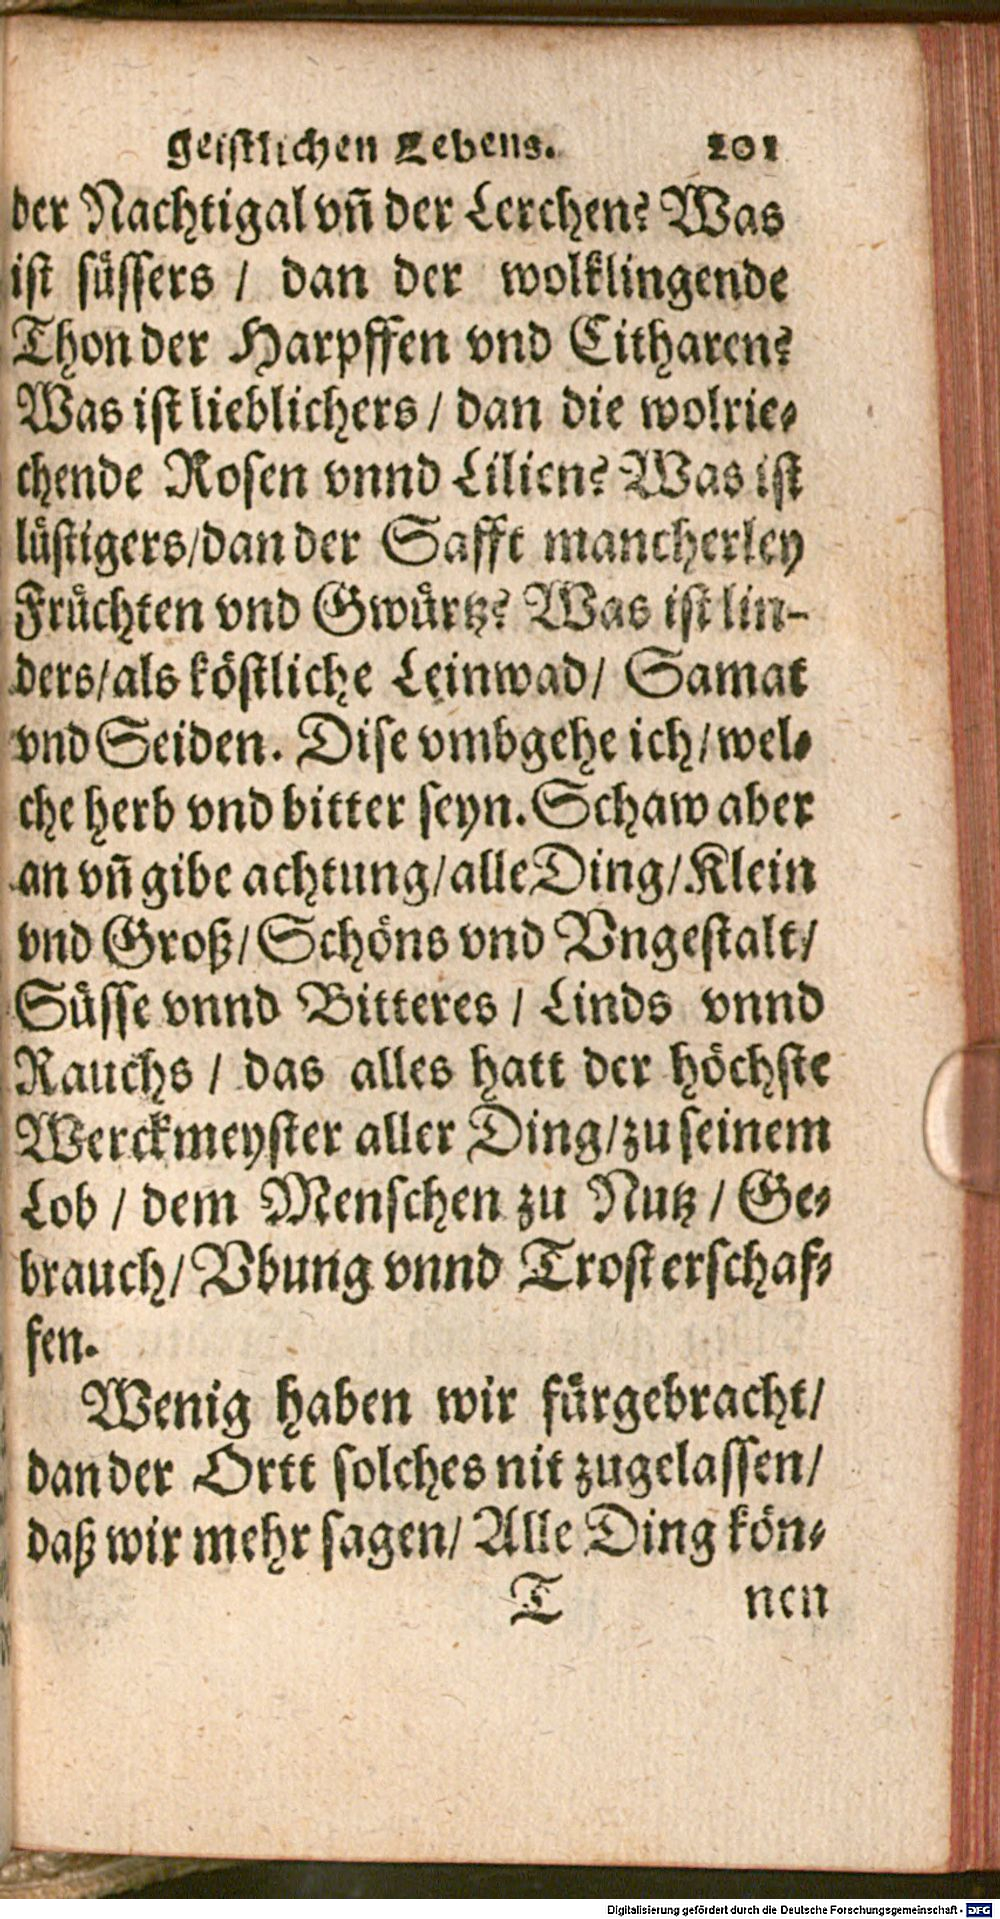 geistlichen Lebens. 201
der Nachtigal vñ der Lerchen? Was
ist süssers / dan der wolklingende
Thon der Harpffen vnd Citharen?
Was ist lieblichers / dan die wolrie⸗
chende Rosen vnnd Lilien? Was ist
lüstigers / dan der Safft mancherley
Früchten vnd Gwürtz? Was ist lin-
ders / als köstliche Leinwad / Samat
vnd Seiden. Dise vmbgehe ich / wel⸗
che herb vnd bitter seyn. Schaw aber
an vñ gibe achtung / alle Ding / Klein
vnd Groß / Schöns vnd Vngestalt /
Süsse vnnd Bitteres / Linds vnnd
Rauchs / das alles hatt der höchste
Werckmeyster aller Ding / zu seinem
Lob / dem Menschen zu Nutz / Ge⸗
brauch / Vbung vnnd Trost erschaf⸗
fen.
Wenig haben wir fürgebracht /
dan der Ortt solches nit zugelassen /
daß wir mehr sagen / Alle Ding kön⸗
T nen
Digitalisierung gefördert durch die Deutsche Forschungsgemeinschaft - DFG